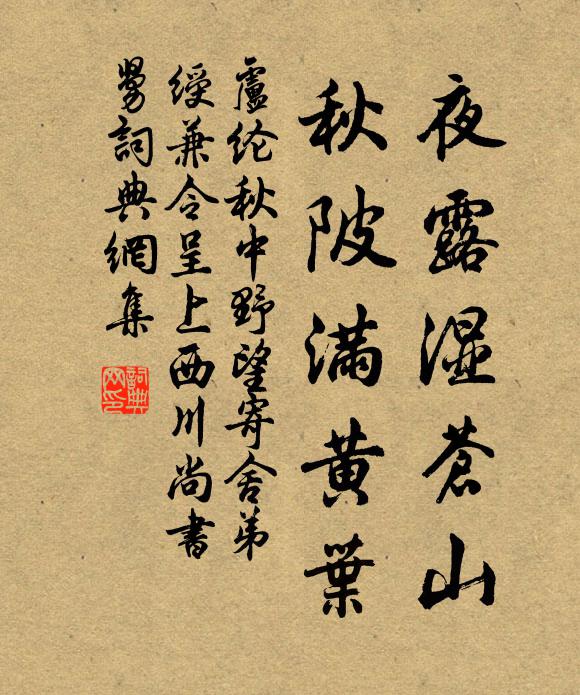 夜露湿蒼山
秋陂滿黄葉
盧纶秋中野望寄舍弟
綬兼令呈上西川尚書
舅詞典網集
詞典网印